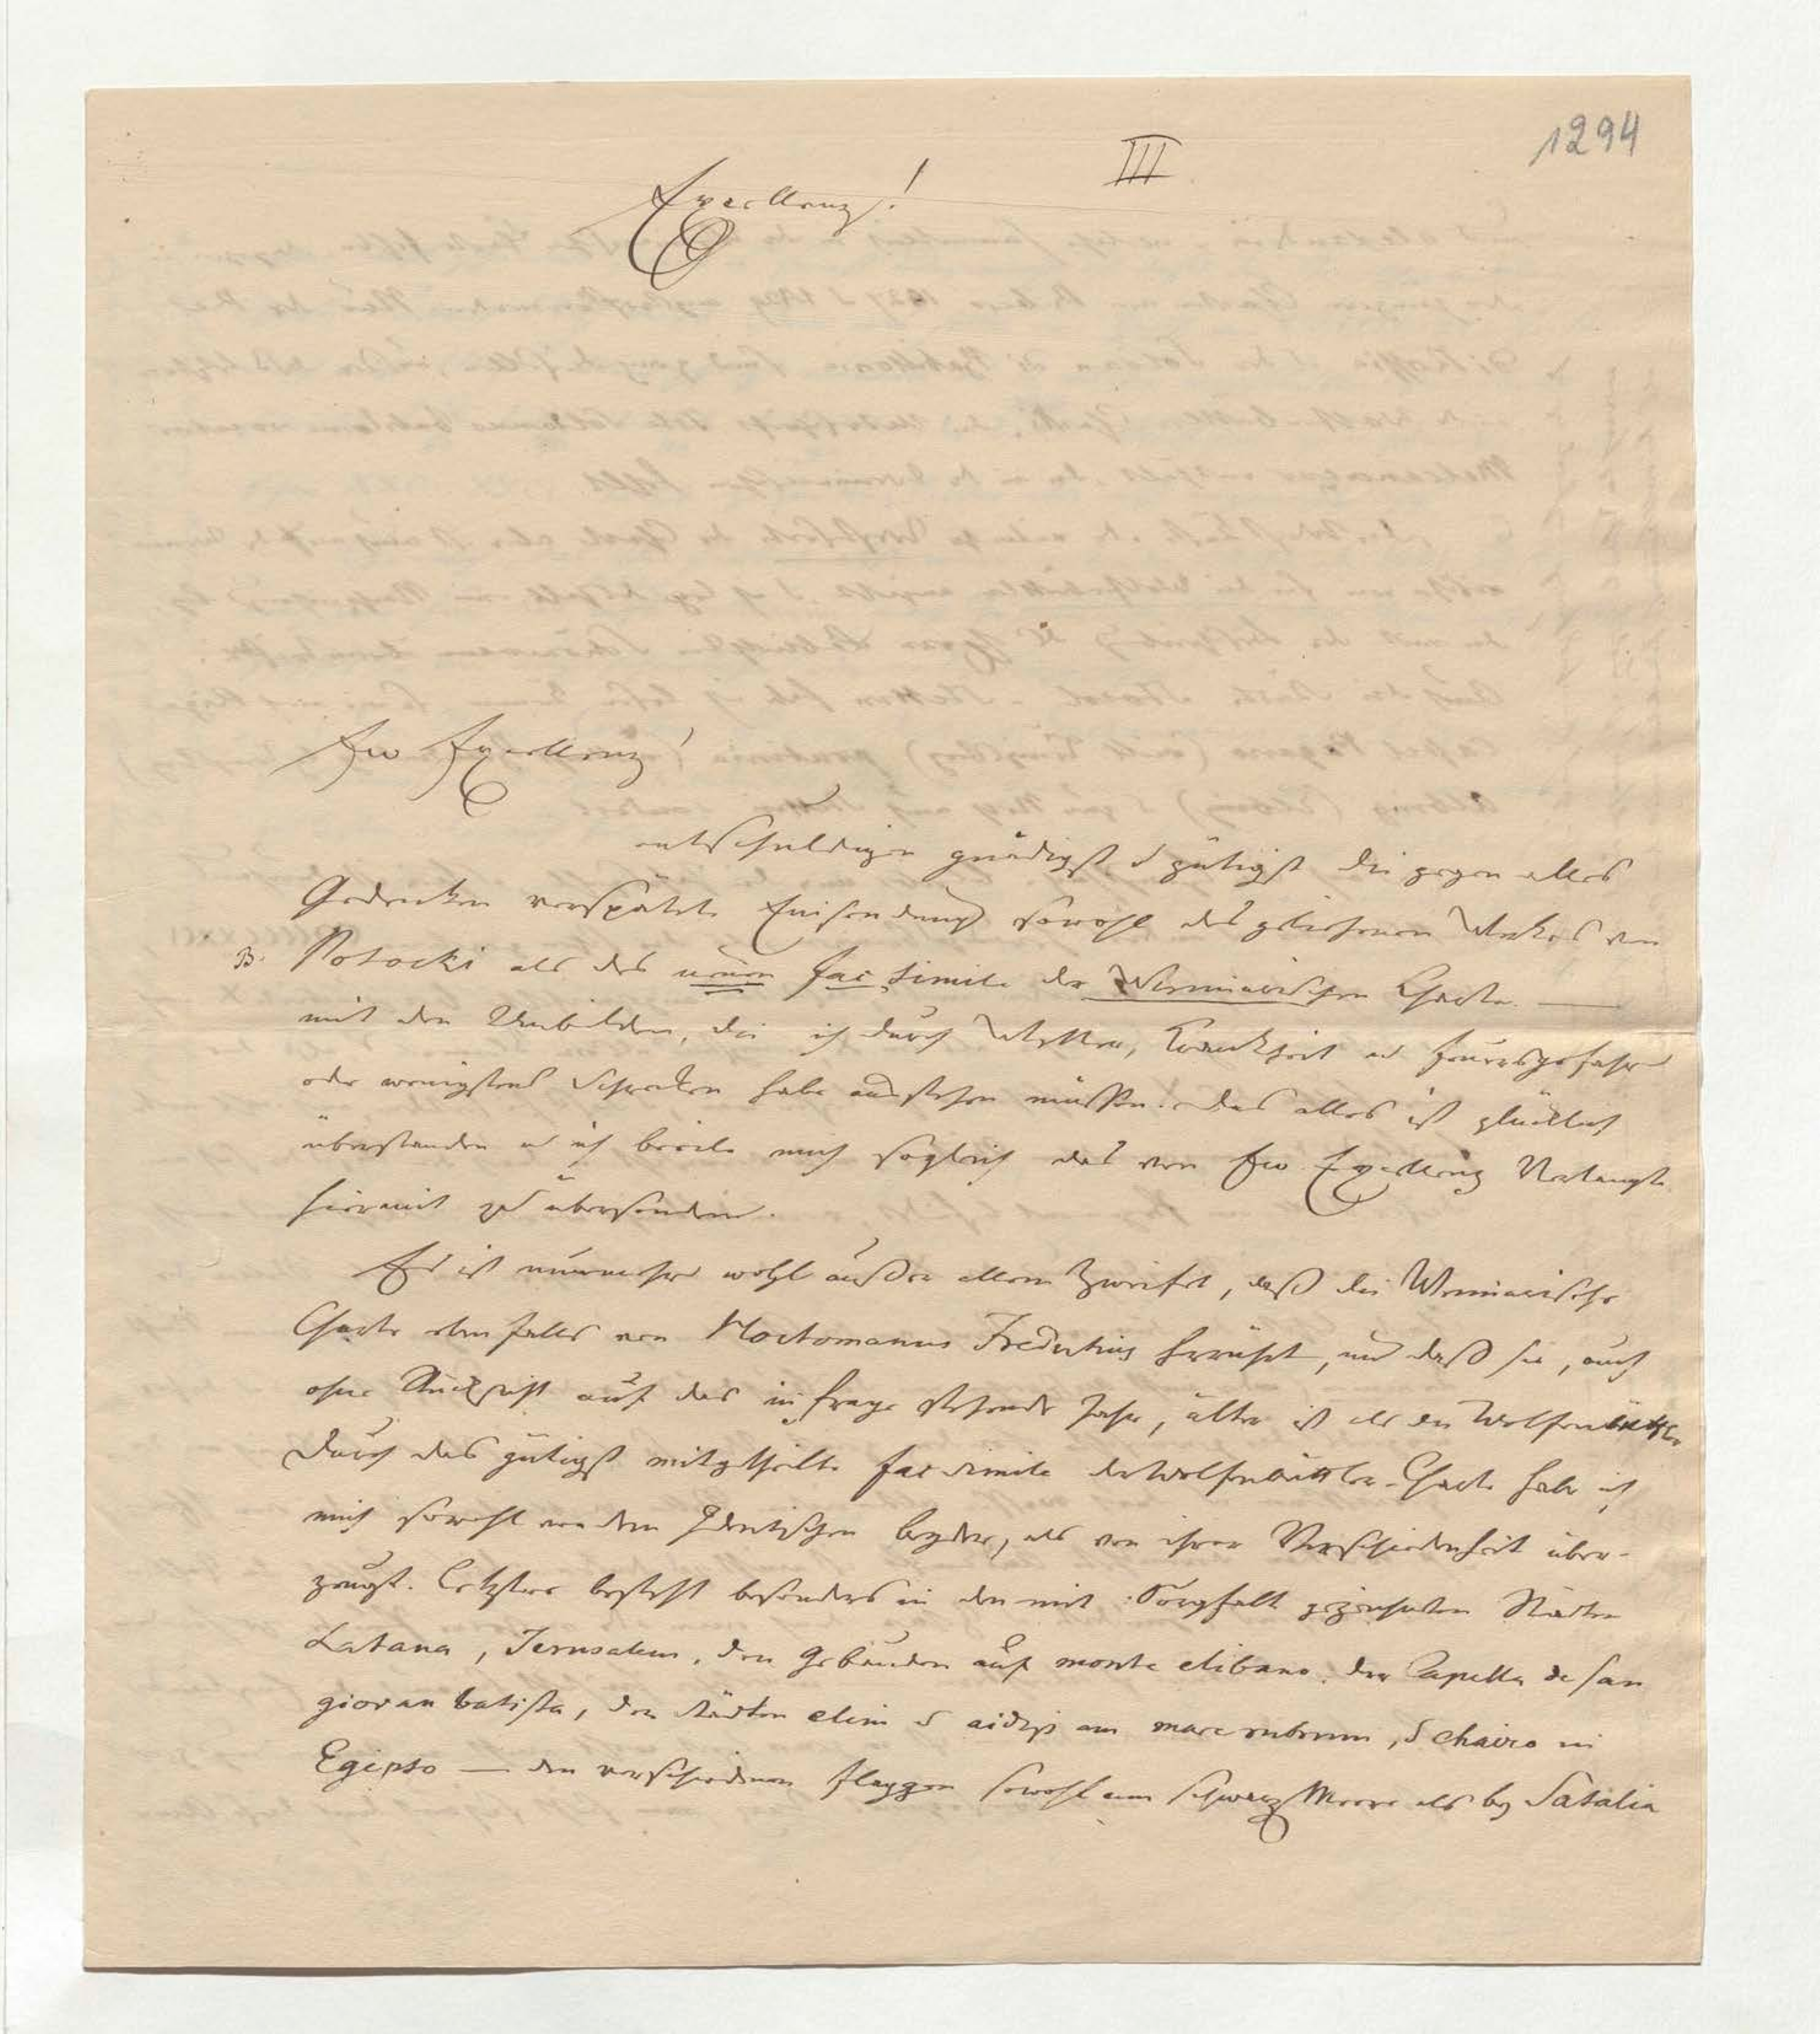 1294
III
Excellenz!
Ew Excellenz!
entschuldigen gnädigst u gütigst die gegen alles
Gedenken verspätete Einsendung sowohl des geliehenen Werkes von
B. Potocki als des neuen fac simile der Weimarischen Charte. —
mit den Unbilden, die ich durch Wetter, Krankheit u Feuersgefahr
oder wenigstens Schrecken habe ausstehen müssen. Das alles ist glücklich
überstanden u ich beeile mich sogleich das von Ew. Excellenz Verlangte
hiermit zu übersenden.
Es ist nunmehr wohl außer allem Zweifel, daß die Weimarische
Charte ebenfalls von Hoctomanus Fredutius herrührt, und daß sie, auch
ohne Rücksicht auf das in Frage stehende Jahr, älter ist als die Wolfenbüttler
Durch das gütigst mitgetheilte fac simile der Wolfenbüttler Charte habe ich
mich sowohl von dem Identischen beyder, als von ihrer Verschiedenheit über-
zeugt. Letztere besteht besonders in den mit Sorgfalt gezeichneten Städten
Latana, Jerusalem, den Gebäuden auf monte elibano, der Capella de san
giovan batista, den Städten elim u aidip am mare rubrum, u chairo in
Egipto — den verschiedenen Flaggen sowohl am schwarz Meere als bey Satalia